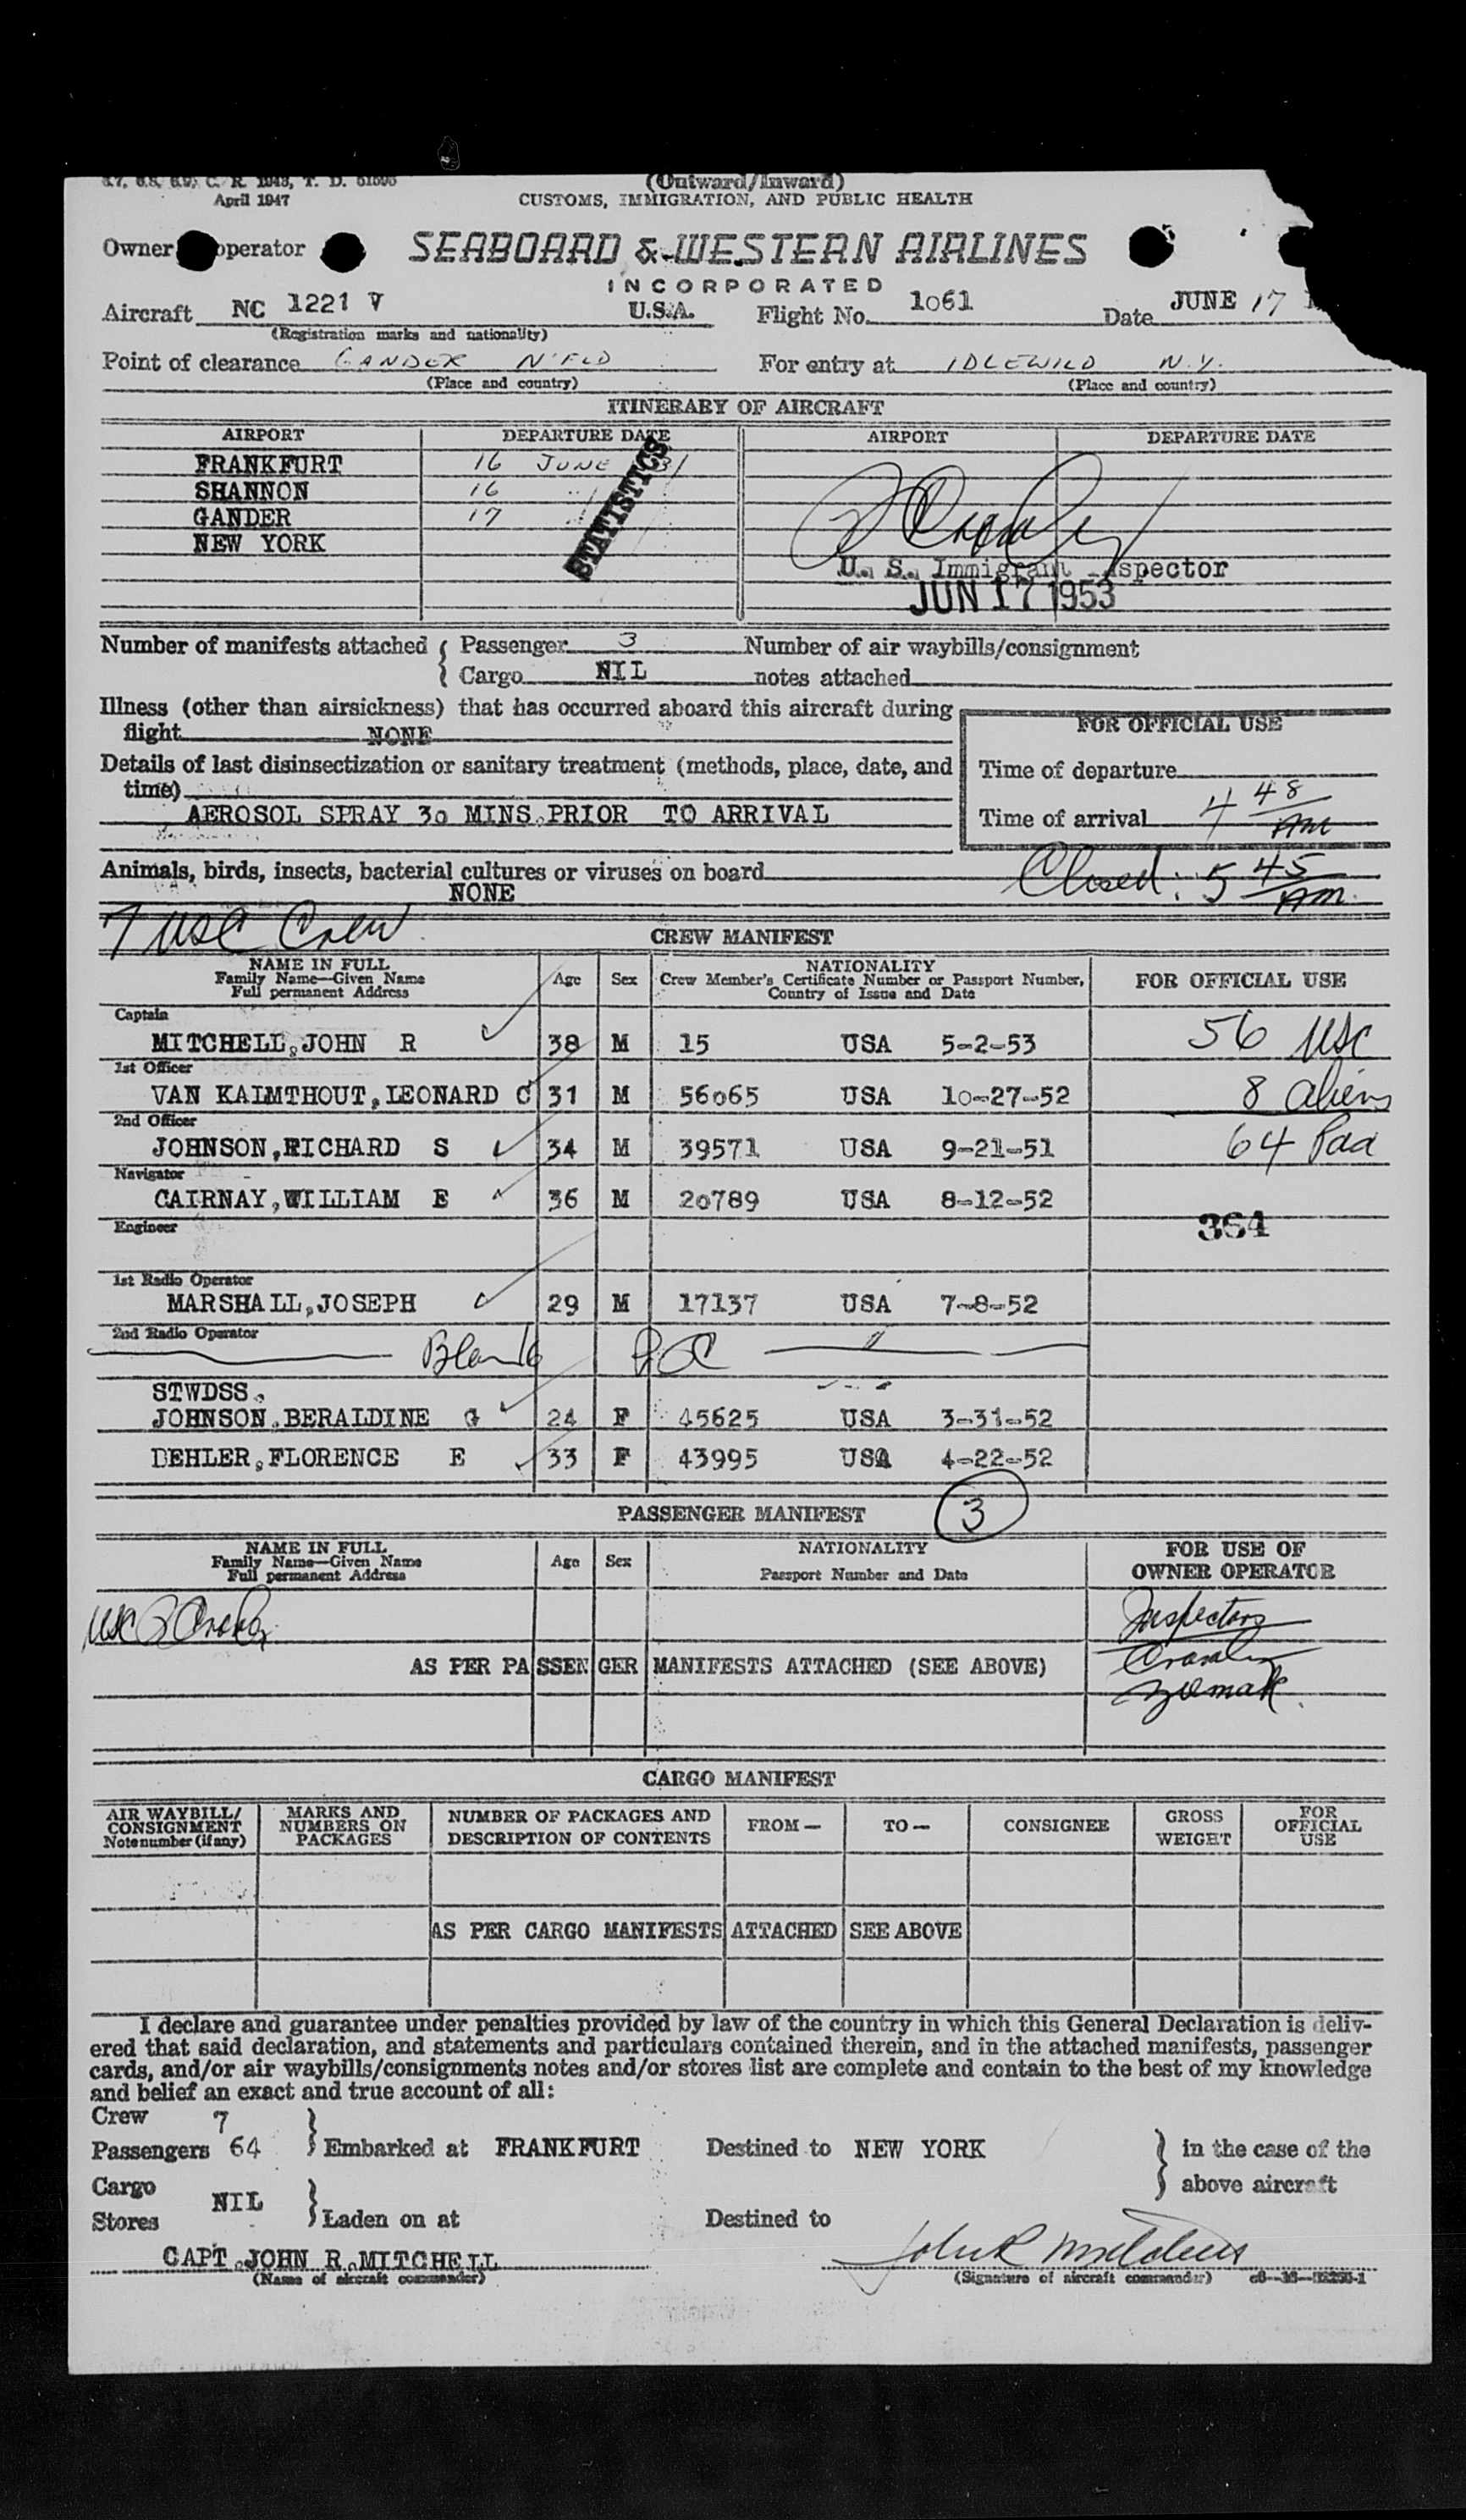 6.7, 6.8, 6.9, C. R. 1943, T. D.
(Outward/Inward)
April 1947
CUSTOMS, IMMIGRATION, AND PUBLIC HEALTH
Owner operator SEABOARD & WESTERN AIRLINES
INCORPORATED
Aircraft NC 1221 V U.S.A. Flight No. 1061 Date JUNE 17
(Registration marks and nationality)
Point of clearance GANDER N'FLD For entry at IDLEWILD N.Y.
(Place and country) (Place and country)
ITINERARY OF AIRCRAFT
AIRPORT DEPARTURE DATE AIRPORT DEPARTURE DATE
FRANKFURT 16 JUNE
SHANNON 16 "
GANDER 17 "
NEW YORK
STATISTICS
U. S. Immigrant Inspector
JUN 17 1953
Number of manifests attached { Passenger 3 Number of air waybills/consignment
Cargo NIL notes attached
Illness (other than airsickness) that has occurred aboard this aircraft during
flight NONE
FOR OFFICIAL USE
Details of last disinsectization or sanitary treatment (methods, place, date, and
time)
Time of departure
AEROSOL SPRAY 30 MINS PRIOR TO ARRIVAL
Time of arrival 4 48 AM
Animals, birds, insects, bacterial cultures or viruses on board
NONE
Closed: 5 45 AM
7 USC Crew
CREW MANIFEST
NAME IN FULL
Family Name—Given Name
Full permanent Address
Age Sex NATIONALITY
Crew Member's Certificate Number or Passport Number,
Country of Issue and Date
FOR OFFICIAL USE
Captain
MITCHELL, JOHN R 38 M 15 USA 5-2-53 56 USC
1st Officer
VAN KALMTHOUT, LEONARD C 31 M 56065 USA 10-27-52 8 aliens
2nd Officer
JOHNSON, RICHARD S 34 M 39571 USA 9-21-51 64 Pax
Navigator
CAIRNAY, WILLIAM E 36 M 20789 USA 8-12-52
364
Engineer
1st Radio Operator
MARSHALL, JOSEPH 29 M 17137 USA 7-8-52
2nd Radio Operator
Blank
STWDSS.
JOHNSON, BERALDINE G 24 F 45625 USA 3-31-52
DEHLER, FLORENCE E 33 F 43995 USA 4-22-52
PASSENGER MANIFEST 3
NAME IN FULL
Family Name—Given Name
Full permanent Address
Age Sex NATIONALITY
Passport Number and Date
FOR USE OF
OWNER OPERATOR
USC
Inspectors
AS PER PASSENGER MANIFESTS ATTACHED (SEE ABOVE)
CARGO MANIFEST
AIR WAYBILL/
CONSIGNMENT
Note number (if any)
MARKS AND
NUMBERS ON
PACKAGES
NUMBER OF PACKAGES AND
DESCRIPTION OF CONTENTS
FROM— TO— CONSIGNEE
GROSS
WEIGHT
FOR
OFFICIAL
USE
AS PER CARGO MANIFESTS ATTACHED SEE ABOVE
I declare and guarantee under penalties provided by law of the country in which this General Declaration is deliv-
ered that said declaration, and statements and particulars contained therein, and in the attached manifests, passenger
cards, and/or air waybills/consignments notes and/or stores list are complete and contain to the best of my knowledge
and belief an exact and true account of all:
Crew 7
Passengers 64 } Embarked at FRANKFURT Destined to NEW YORK } in the case of the
above aircraft
Cargo
NIL
Stores } Laden on at Destined to
CAPT. JOHN R. MITCHELL John R Mitchell
(Name of aircraft commander) (Signature of aircraft commander)